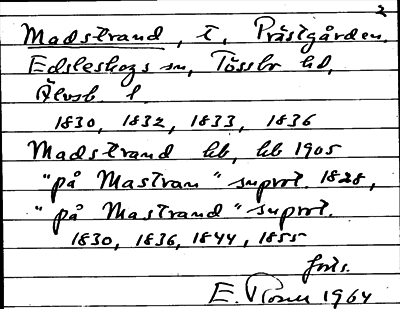 2
Madstrand, t. Prästgården,
Edsleskogs sn, Tössbo hd,
Älvsb. l.
1830, 1832, 1833, 1836
Madstrand hb, hb 1905
"på Mastran" suprot. 1828,
"på Mastrand" suprot.
1830, 1836, 1844, 1855
forts.
E. 1964